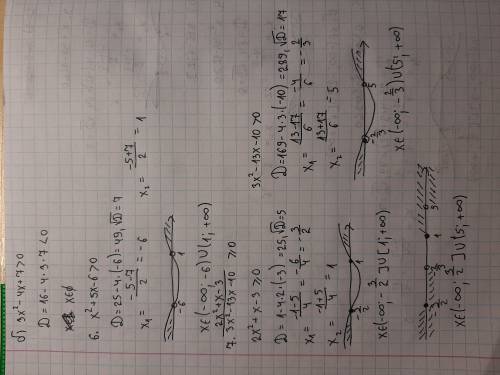 б) 3x² - 4x + 7 > 0
D = 16 - 4 · 3 · 7 < 0
x∈∅
6. x² + 5x - 6 > 0
D = 25 - 4 · (-6) = 49, √D = 7
x₁ = (-5-7)/2 = -6
x₂ = (-5+7)/2 = 1
-6 1
x∈(-∞; -6)∪(1; +∞)
7. (2x² + x - 3)/(3x² - 13x - 10) ≥ 0
2x² + x - 3 ≥ 0
D = 1 - 4 · 2 · (-3) = 25, √D = 5
x₁ = (-1-5)/4 = -6/4 = -3/2
x₂ = (-1+5)/4 = 1
-3/2 1
x∈(-∞; -3/2]∪[1; +∞)
3x² - 13x - 10 > 0
D = 169 - 4 · 3 · (-10) = 289, √D = 17
x₁ = (13-17)/6 = -4/6 = -2/3
x₂ = (13+17)/6 = 5
-2/3 5
x∈(-∞; -2/3)∪(5; +∞)
-3/2 -2/3 1 5
x∈(-∞; -3/2]∪(5; +∞)